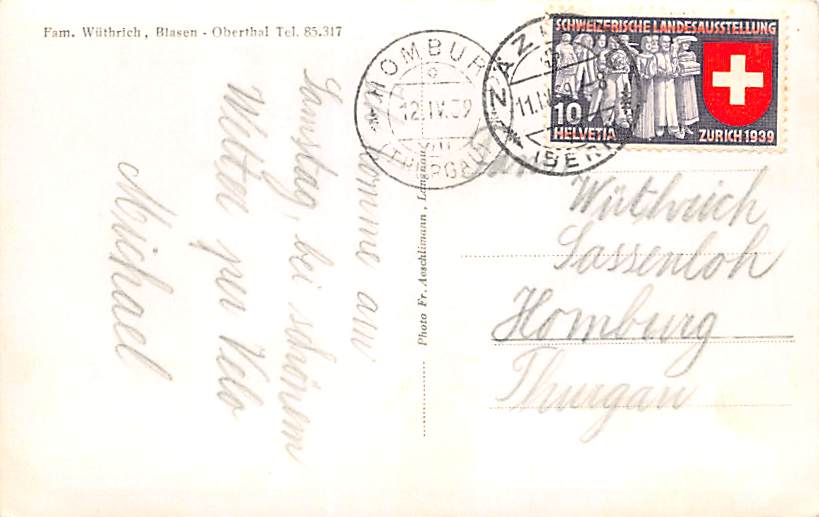 Fam. Wüthrich, Blasen - Oberthal Tel. 85.317
komme am
Samstag, bei schönem
Wetter per Velo
Michael
Photo Fr. Aeschlimann, Langnau
HOMBURG
12.IV.39
VIII
(THURGAU)
ZÄZI
(BERN)
SCHWEIZERISCHE LANDESAUSSTELLUNG
10
HELVETIA
ZURICH 1939
Fam.
Wüthrich
Sassenloh
Homburg
Thurgau